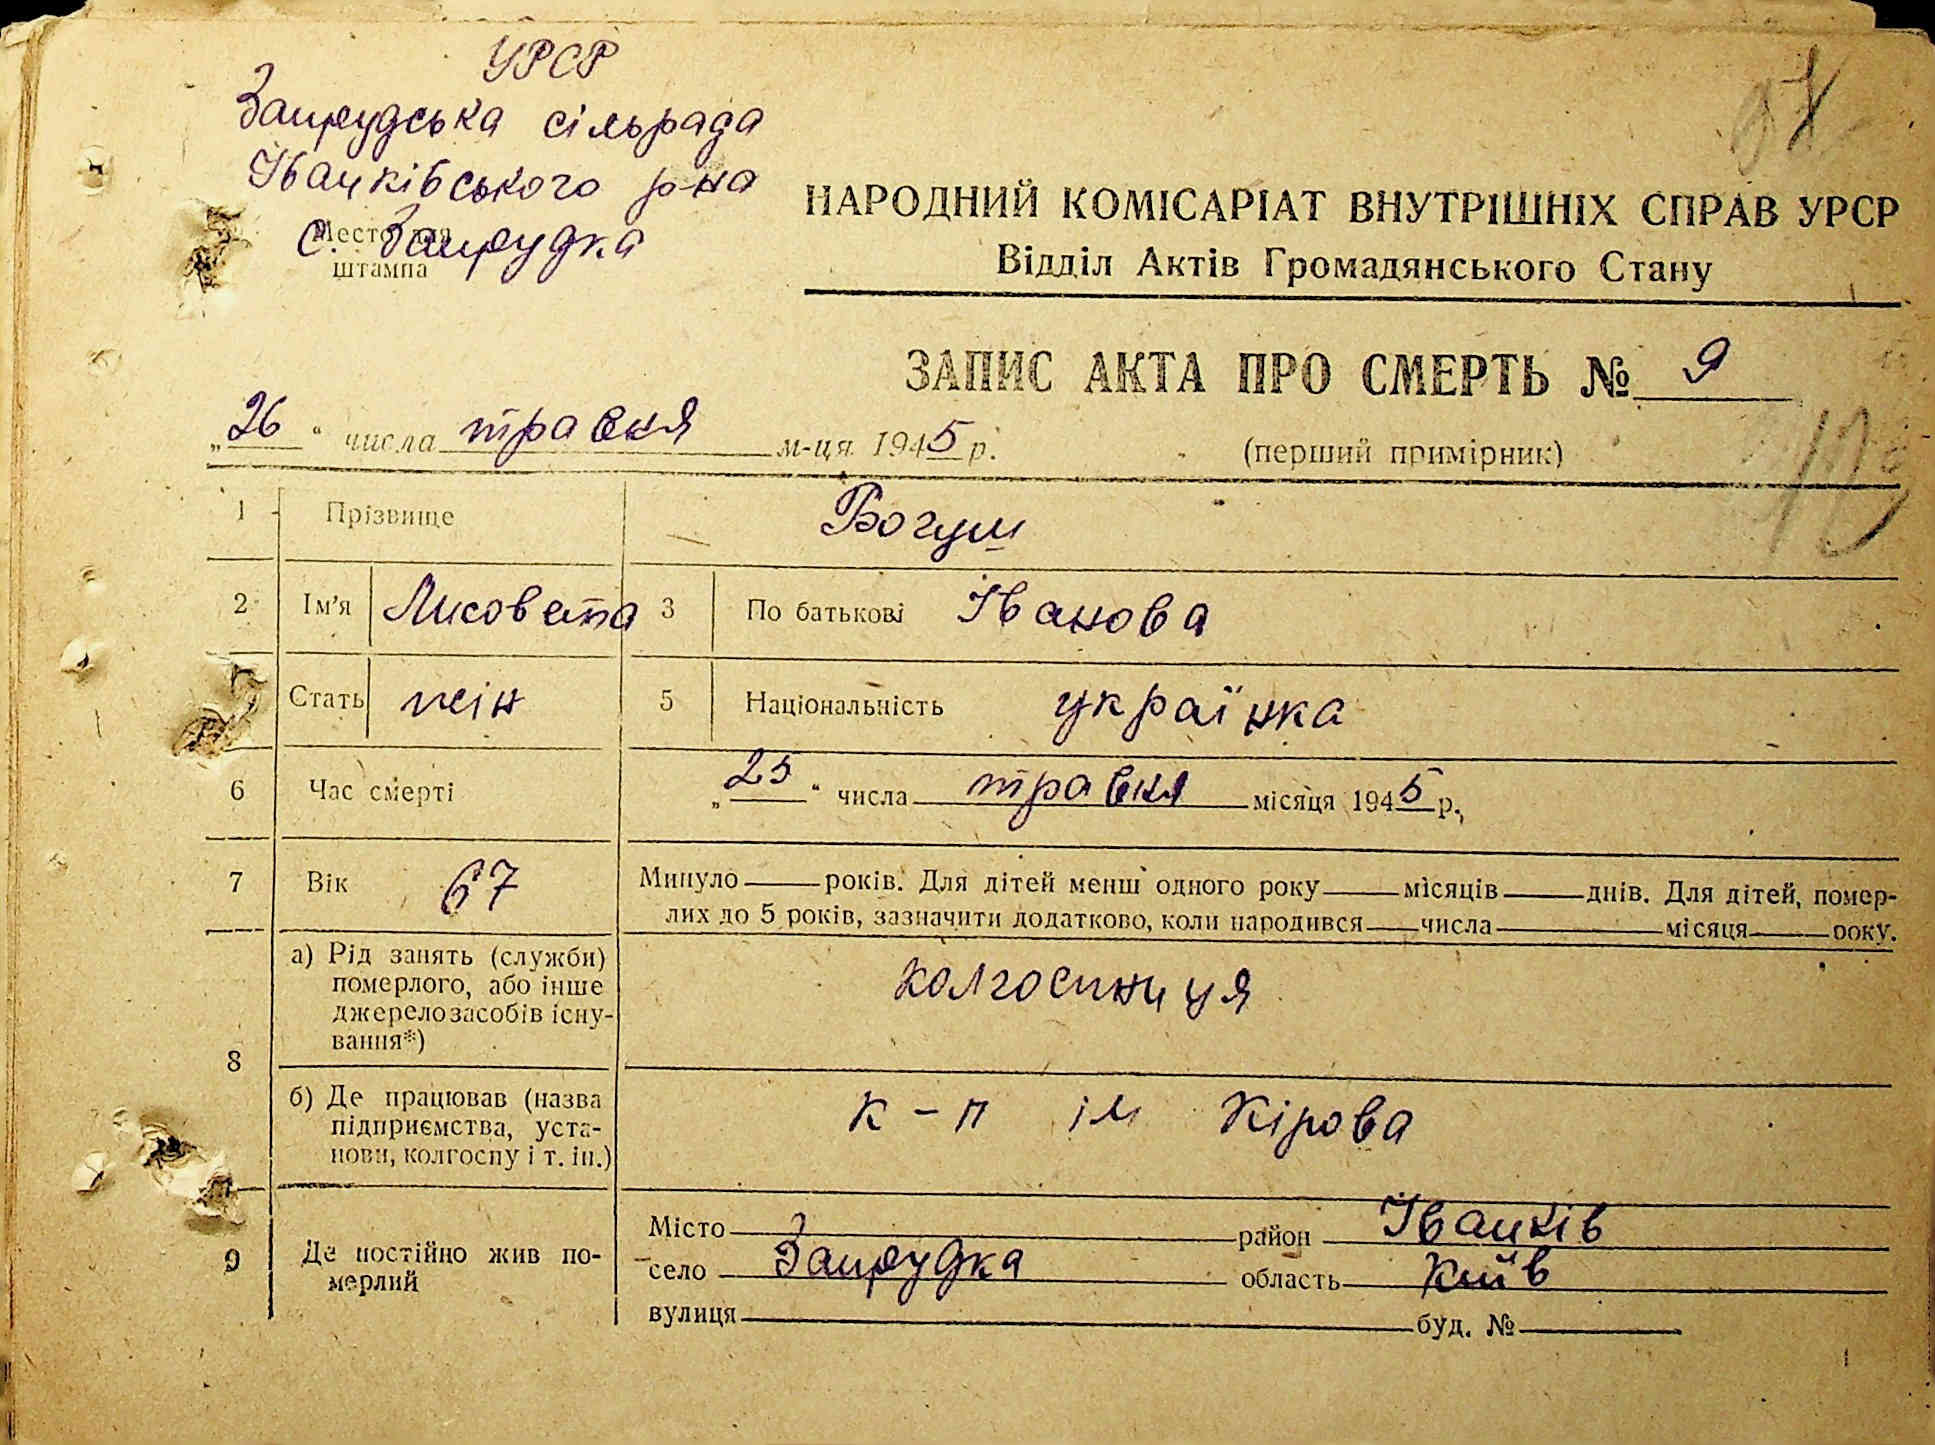 УРСР
Запрудська сільрада
Іванківського р-на
с. Запрудка
Место для
штампа
НАРОДНИЙ КОМІСАРІАТ ВНУТРІШНІХ СПРАВ УРСР
Відділ Актів Громадянського Стану
ЗАПИС АКТА ПРО СМЕРТЬ № 9
„26“ числа травня м-ця 1945 р. (перший примірник)
1 Прізвище Богуш
2 Ім'я Лисовета 3 По батькові Іванова
Стать жін 5 Національність українка
6 Час смерті „25“ числа травня місяця 1945 р.,
7 Вік 67 Минуло років. Для дітей менш одного року місяців днів. Для дітей, помер-
лих до 5 років, зазначити додатково, коли народився числа місяця року.
8 а) Рід занять (служби)
померлого, або інше
джерело засобів існу-
вання*)
колгоспниця
б) Де працював (назва
підприємства, уста-
нови, колгоспу і т. ін.)
к-п ім Кірова
9 Де постійно жив по-
мерлий
Місто район Іванків
село Запрудка область Київ
вулиця буд. №